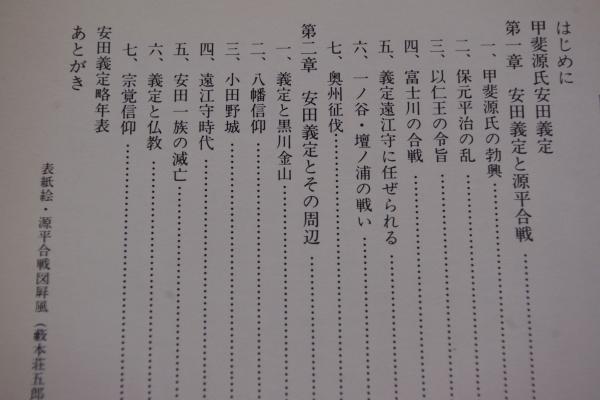 はじめに
甲斐源氏安田義定
第一章　安田義定と源平合戦……………
一、甲斐源氏の勃興……………
二、保元平治の乱……………
三、以仁王の令旨……………
四、富士川の合戦……………
五、義定遠江守に任ぜられる……………
六、一ノ谷・壇ノ浦の戦い……………
七、奥州征伐……………
第二章　安田義定とその周辺……………
一、義定と黒川金山……………
二、八幡信仰……………
三、小田野城……………
四、遠江守時代……………
五、安田一族の滅亡……………
六、義定と仏教……………
七、宗覚信仰……………
安田義定略年表
あとがき
表紙絵・源平合戦図屏風（藪本荘五郎